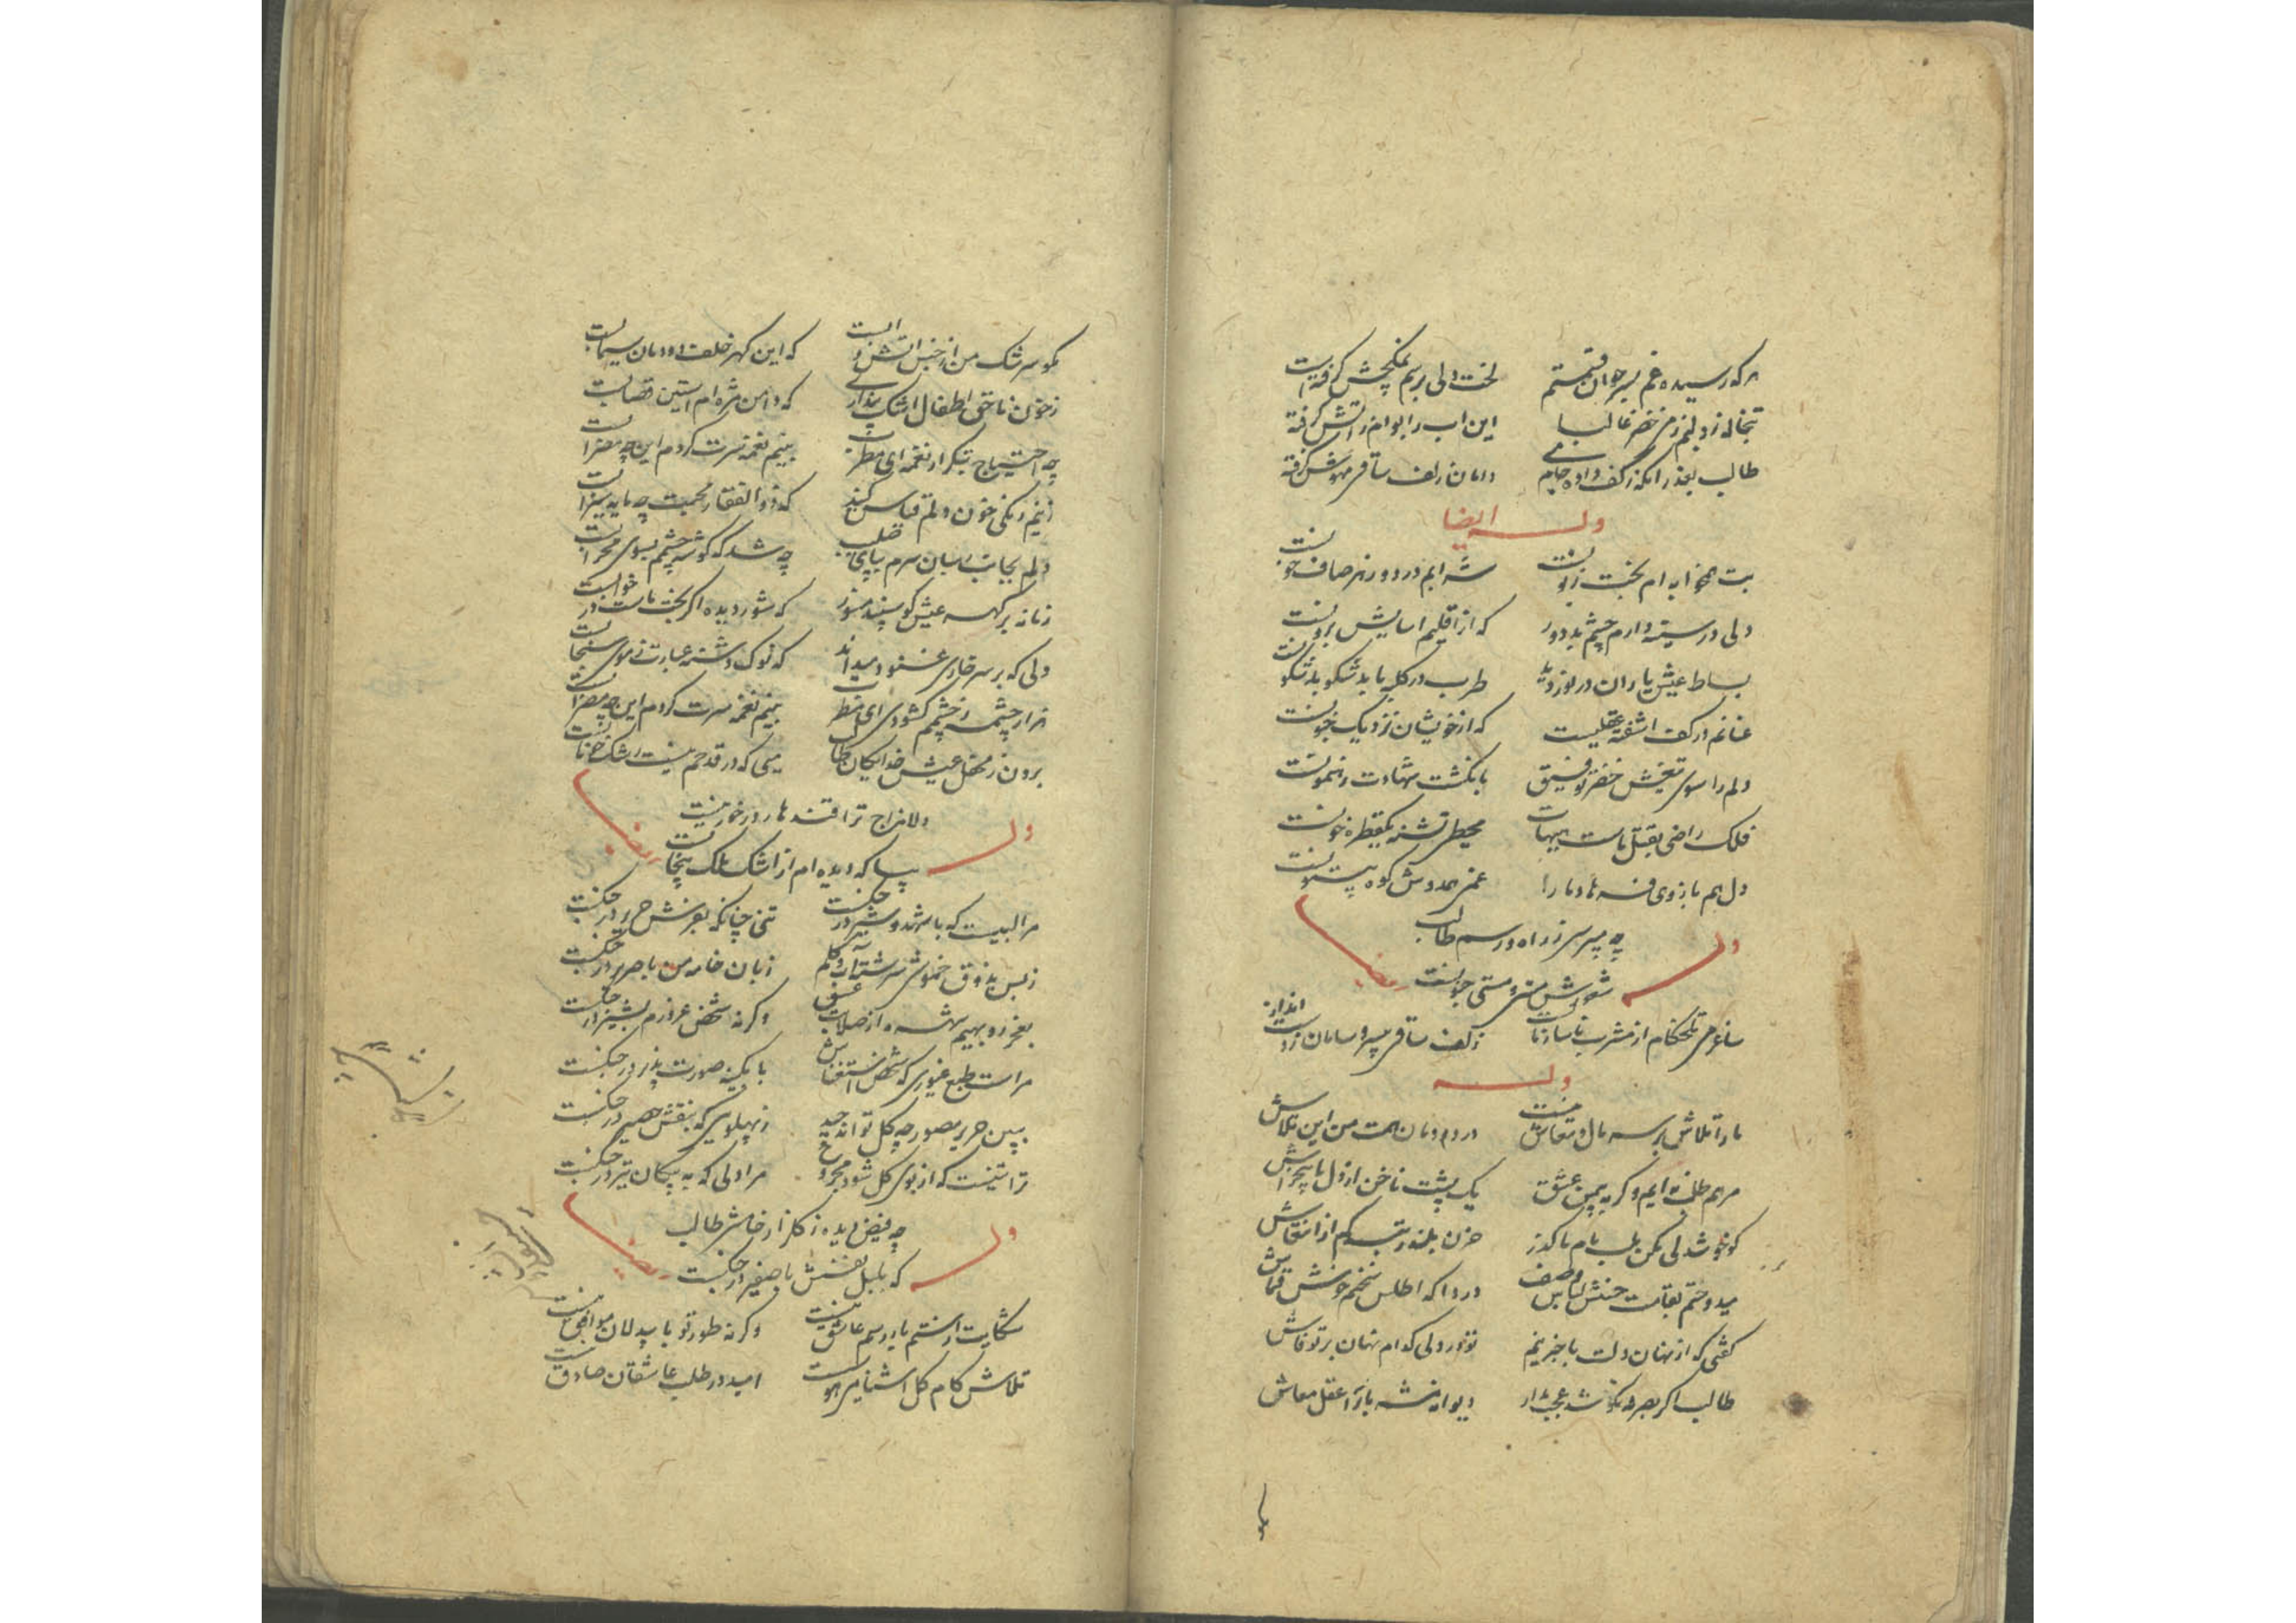 هر که رسیده غم بسر خوان قسمتم لخت دلی برسم نمکچش گرفته است
تبخاله زد لبم ز می خضر غالبا این اب را بوام ز اتش گرفته
طالب بعذر انکه ز کف داده جام می دامان زلف ساقی مهوش گرفته
وله ایضا
بت همخوابه ام بخت زبونست
دلی در سینه دارم چشم بد دور که از اقلیم اسایش برونست
بساط عیش یاران در نوردید طرب در کلبه ما بد شکونست
عنانم در کف اشفته عقلیست که از خویشان نزدیک جنونست
دلم را سوی تیغش خضر توفیق بانکشت شهادت رهنمونست
فلک راضی بقتل ماست هیهات محیطی تشنه یکقطره خونست
دل هم بازوی فرهاد ما را غمی همدوش کوه بیستونست
چه پرسی ز راه و رسم طالب
وله شعورش مستی و مستی جنونست ایضا
ساغر می تلخکام از مشرب ناساز ماست زلف ساقی بی سر و سامان ز انداز ماست
وله
ما را تلاش بر سر مال و معاش نیست در دودمان همت من این تلاش نیست
مرهم طلب نه ایم و گر نه بیمن عشق یک پشت ناخن از دل ما بیخراش نیست
حزن بلند رتبه کم از انتعاش نیست
میدوختم بقامت حسنش لباس وصف دردا که اطلس سخنم خوش قماش نیست
گفتی که از نهان دلت با خبر نیم نو در دلی کدام نهان بر تو فاش نیست
طالب اگر بصرفه نکوشد عجب مدار دیوانه منش است با را عقل معاش
مگو سرشک من از جنس اتش و ابست که این گهر خلف دودمان سیمابست
ز خون ناحق اطفال اشک پنداری که دامن مژه ام استین قصابست
چه احتیاج بتکرار نغمه ای مطرب بنیم نغمه ز سرت کردم این چه مضرابست
ز نیم رنگی خون دلم قیاس کنید که ذوالفقار محبت چه مایه سیرابست
دلم بجانب رهبان سرم بپای صلیب چه شد که گوشه چشمم بسوی محرابست
زمانه بر گهر عیش گو سپند مسوز که شور دیده اگر بخت ماست در خوابست
دلی که بر سر خاری غنود میداند که نوک دشنه عبارت ز موی سنجابست
هزار چشمه ز چشمم گشودی ای مطرب بنیم نغمه ز سرت کردم این چه مضرابست
برون ز محفل عیش خدایگان طالب میی که در قدحم نیست رشک خونابست
دلا مزاج ترا قند ما در خور نیست
وله بیا که دیده ام از اشک نمک بیجابست ایضا
مرا لبیست که با شهد و شیر در جنگست تنی چنانکه بعریش حریر در جنگست
ز بس بذوق خموشی سرشته اب و گلم زبان خامه من با صریر در جنگست
بعجز روبهیم شهره از صلابت عشق و گرنه شخص غرورم بشیر در جنگست
مراست طبع غیوری که شخص استغناش بآیینه صورت پذیر در جنگست
ببین حریر مصور چه گل تواند چید ز پهلوی که بنقش حصیر در جنگست
ترا تنیست که از بوی گل شود مجروح مرا دلی که به پیکان تیر در جنگست
چه فیض دیده ز گلزار خامشی طالب
وله که بلبل نفسش با صفیر در جنگست ایضا
شکایت از ستم یار رسم عاشق نیست و گرنه طور تو با بیدلان موافق نیست
تلاش کام گل اشنایی هوسست امید در طلب عاشقان صادق نیست